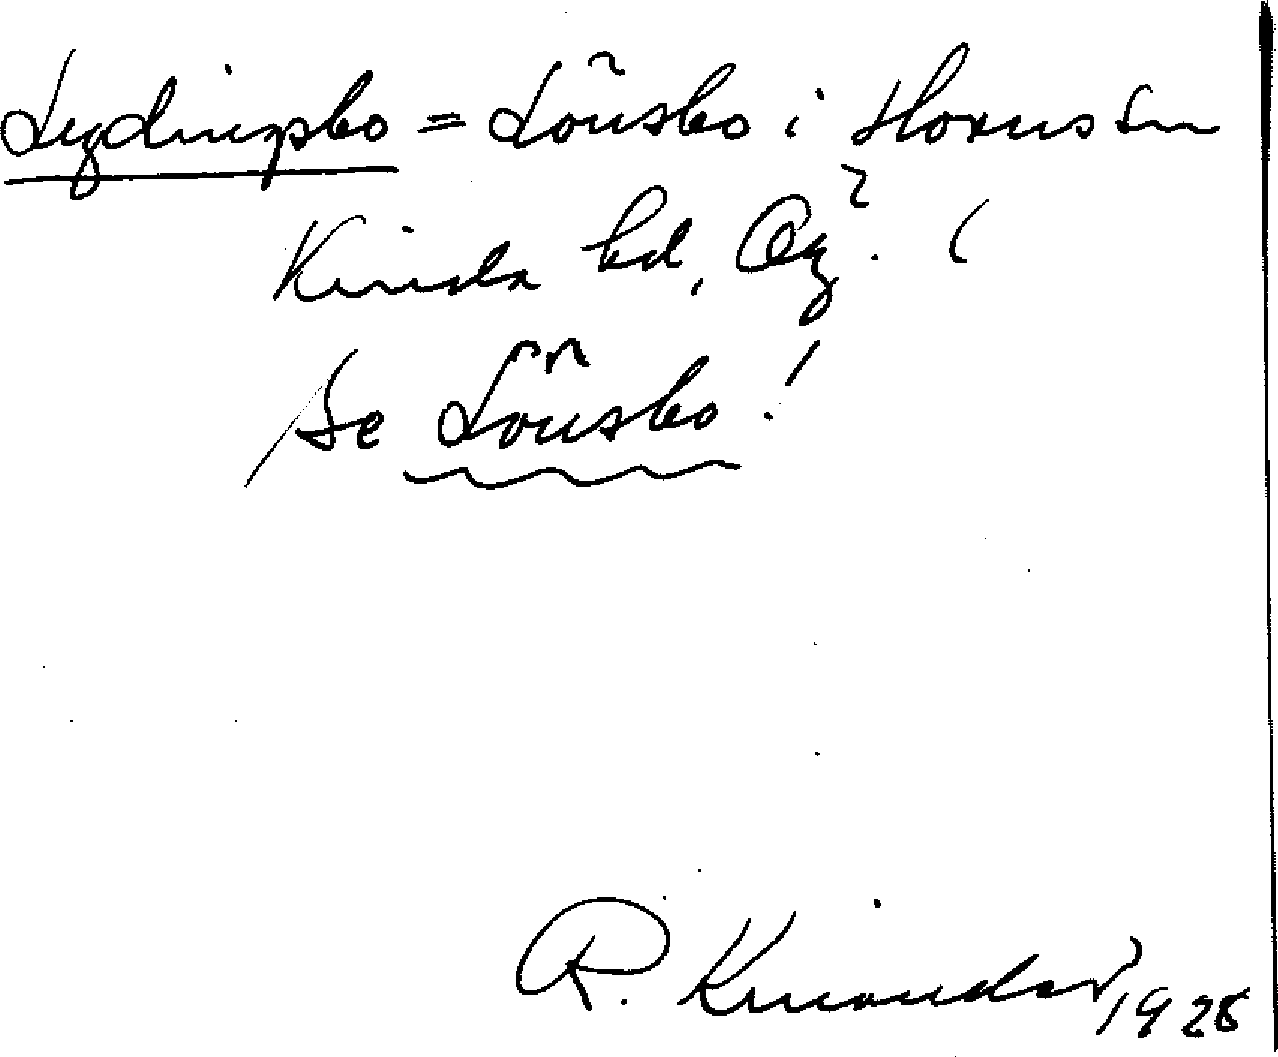 Lydingsbo = Lönsbo i Horns sn
Kinda hd, Ög. (
Se Lönsbo!
R. Kinander